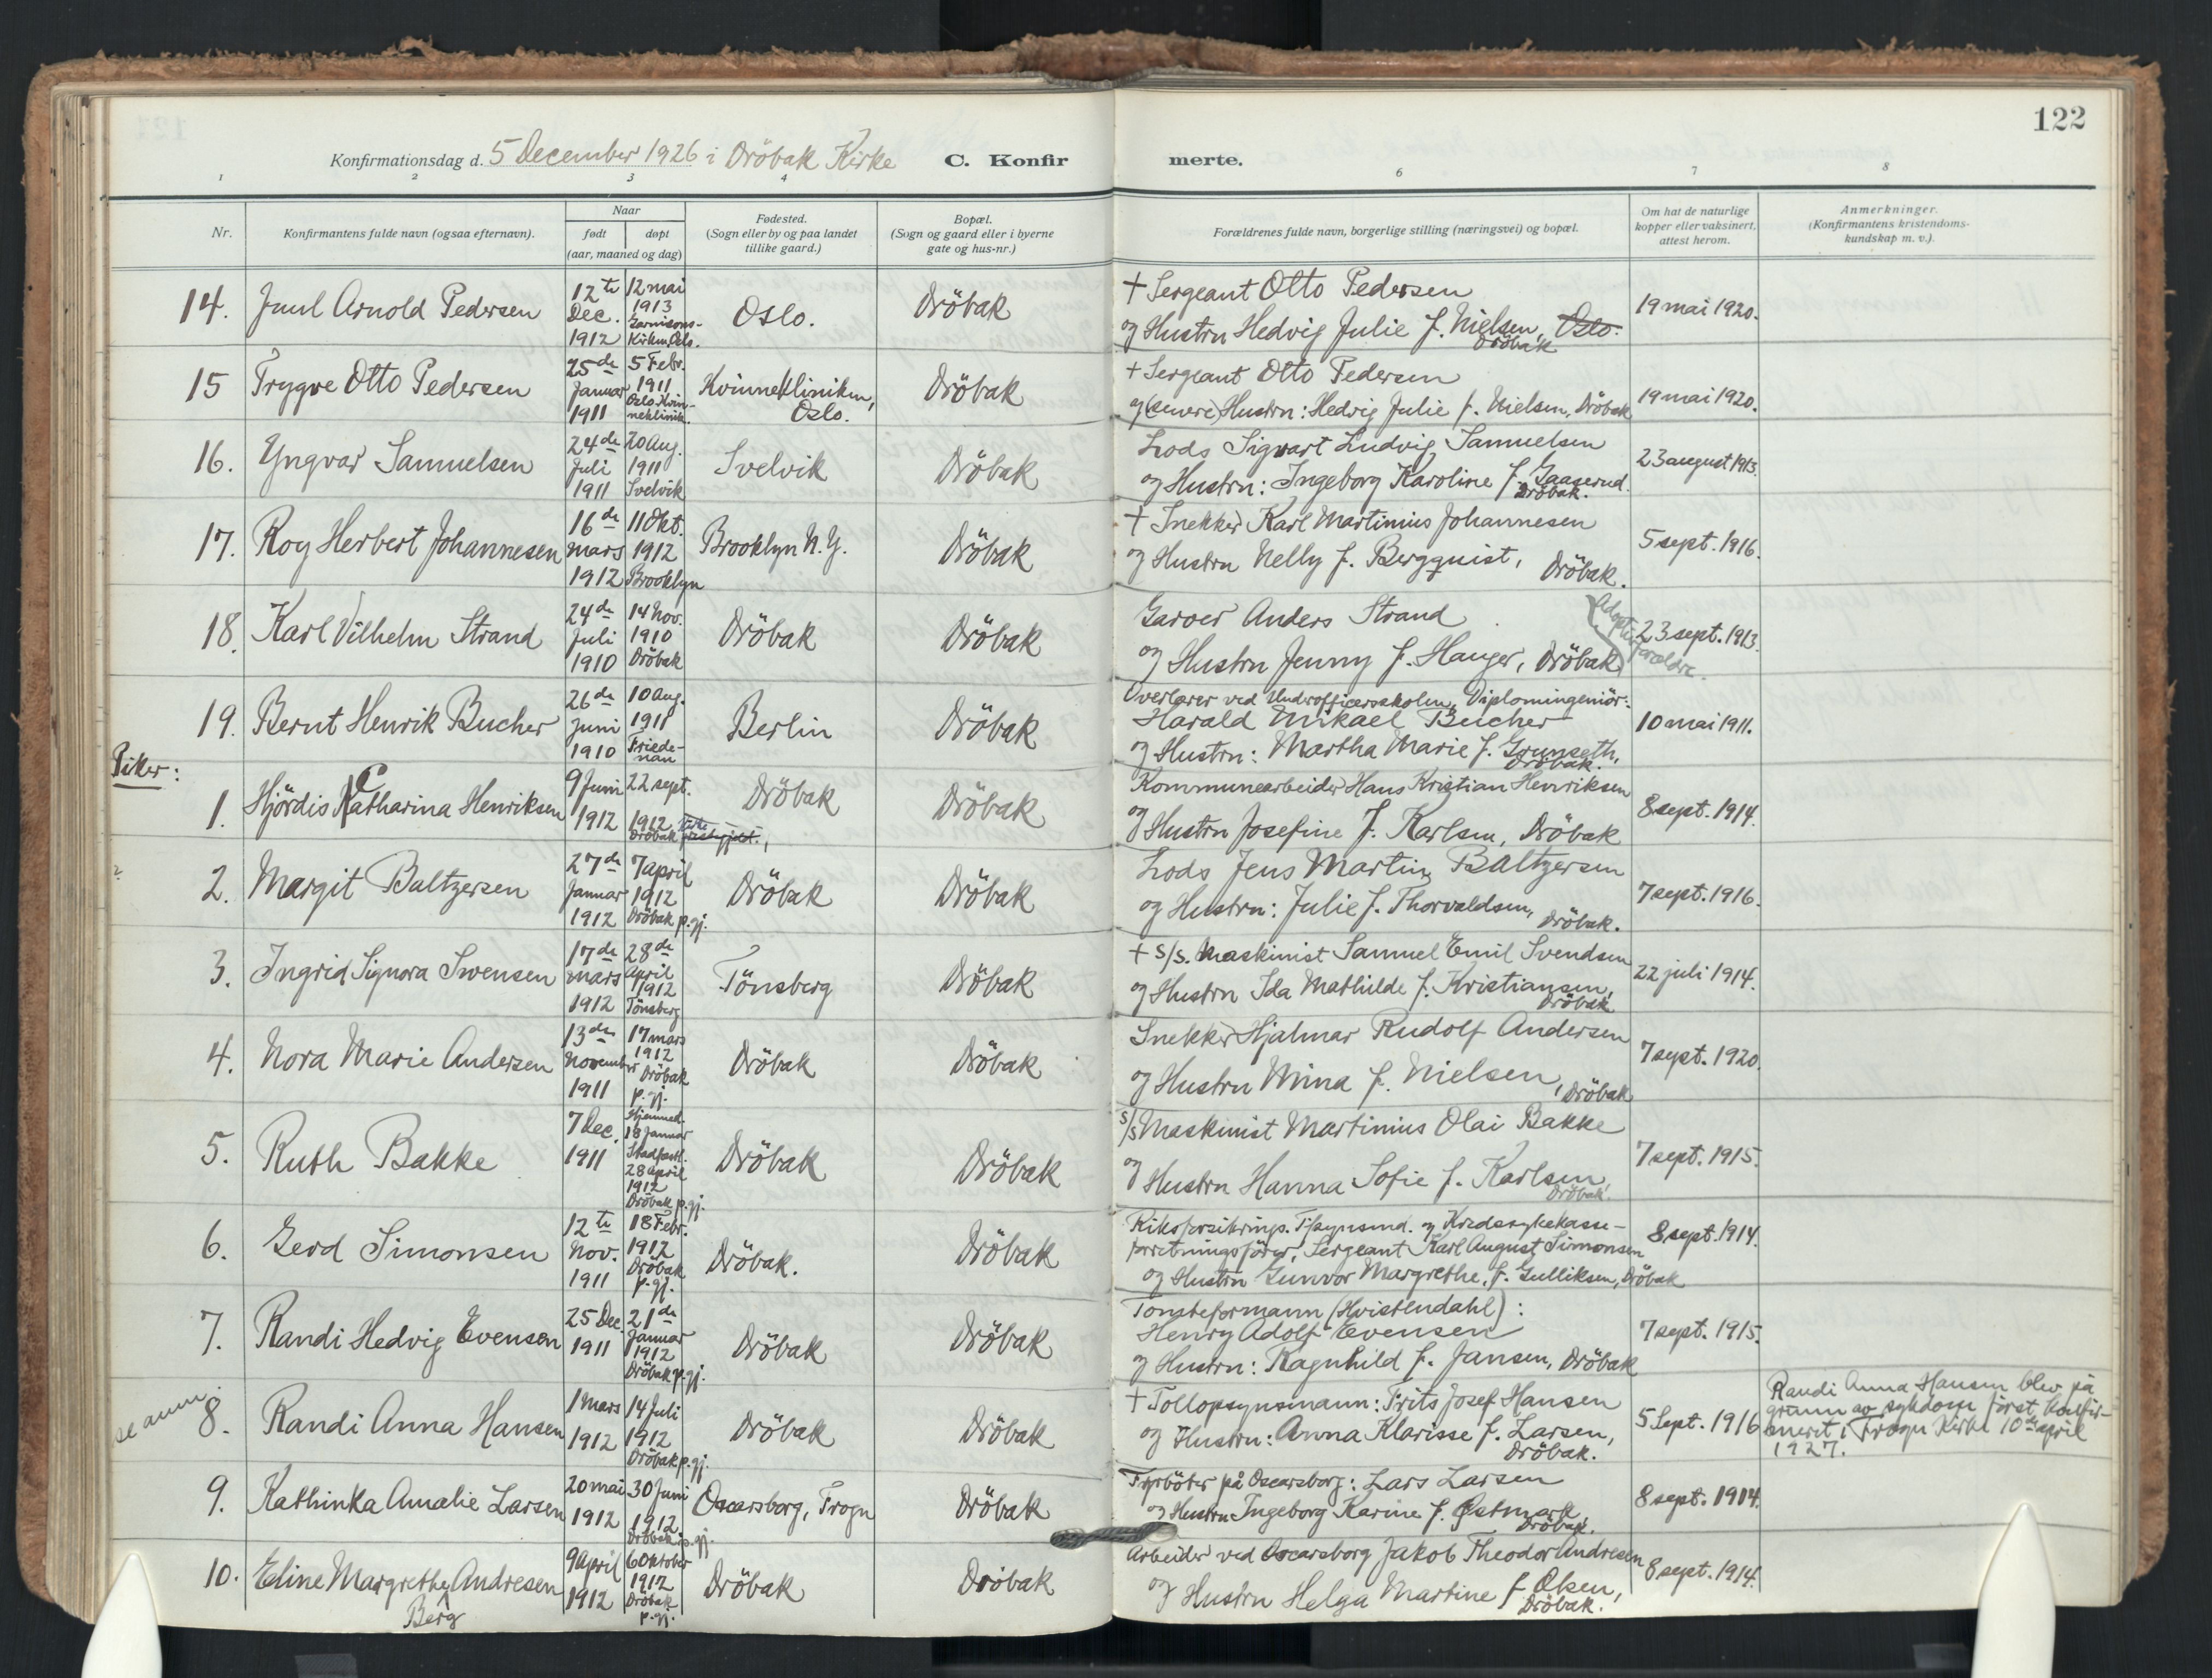 122
Konfirmationsdag d. 5 December 1926 i Dröbak Kirke C. Konfir merte.
1 2 3 4 6 7 8
Nr.
Konfirmantens fulde navn (ogsaa efternavn).
Naar
født
døpt
(aar, maaned og dag)
Fødested.
(Sogn eller by og paa landet
tillike gaard.)
Bopæl.
(Sogn og gaard eller i byerne
gate og hus-nr.)
Forældrenes fulde navn, borgerlige stilling (næringsvei) og bopæl.
Om hat de naturlige
kopper eller vaksinert,
attest herom.
Anmerkninger.
(Konfirmantens kristendoms-
kundskap m. v.).
14. Juul Arnold Pedersen
12te
Dec.
1912
12 mai
1913
Garnisons-
Kirken, Oslo.
Oslo.
Dröbak
+ Sergeant Otto Pedersen
og Hustru Hedvig Julie f. Nielsen, Oslo.
Dröbak
19 mai 1920.
15 Trygve Otto Pedersen
25de
Januar
1911
5 Febr.
1911
Oslo Kvin-
neklinik.
Kvinneklinikken,
Oslo.
Dröbak
+ Sergeant Otto Pedersen
og (senere) Hustru: Hedvig Julie f. Nielsen, Dröbak
19 mai 1920.
16. Yngvar Samuelsen
24de
Juli
1911
20 Aug.
1911
Svelvik
Svelvik
Dröbak
Lods Sigvart Ludvig Samuelsen
og Hustru: Ingeborg Karoline f. Gaaserud.
Dröbak.
23 august 1913.
17. Roy Herbert Johannesen
16de
mars
1912
11 Okt.
1912
Brooklyn
Brooklyn N.Y.
Dröbak
+ Snekker Karl Martinius Johannesen
og Hustru Nelly f. Bergquist,
Dröbak.
5 sept. 1916.
18. Karl Vilhelm Strand
24de
Juli
1910
14 Nov.
1910
Dröbak
Dröbak
Dröbak
Garver Anders Strand
og Hustru Jenny f. Hauger, Dröbak
Adoptiv
forældre.
23 sept. 1913.
19. Bernt Henrik Bucher
26de
Juni
1910
10 Aug.
1911
Friede-
nau
Berlin
Dröbak
Overlærer ved Underofficersskolen, Diplomingeniör:
Harald Mikael Bucher
og Hustru: Martha Marie f. Grunseth,
Dröbak.
10 mai 1911.
Piker:
1. Hjördis Catharina Henriksen
9 Juni
1912
22 sept.
1912
Dröbak prestegjeld.
Kirke
Dröbak
Dröbak
Kommunearbeider Hans Kristian Henriksen
og Hustru Josefine f. Karlsen, Dröbak
8 sept. 1914.
2. Margit Baltzersen
27de
Januar
1912
7 april
1912
Dröbak p.gj.
Dröbak
Dröbak
Lods Jens Martin Baltzersen
og Hustru: Julie f. Thorvaldsen,
Dröbak.
7 sept. 1916.
3. Ingrid Signora Svensen
17de
mars
1912
28de
April
1912
Tönsberg
Tönsberg
Dröbak
+ s/s. Maskinist Samuel Emil Svendsen
og Hustru Ida Mathilde f. Kristiansen,
Dröbak
22 juli 1914.
4. Nora Marie Andersen
13de
November
1911
17 mars
1912
Dröbak
p.gj.
Dröbak
Dröbak
Snekker Hjalmar Rudolf Andersen
og Hustru Mina f. Nielsen, Dröbak
7 sept. 1920.
5. Ruth Bakke
7 Dec.
1911
Hjemmed.
18 Januar
Stadfæst.
28 april
1912
Dröbak p.gj.
Dröbak
Dröbak
s/s Maskinist Martinius Olai Bakke
og Hustru Hanna Sofie f. Karlsen,
Dröbak.
7 sept. 1915.
6. Gerd Simonsen
12te
Nov.
1911
18 Febr.
1912
Dröbak
p.gj.
Dröbak.
Dröbak
Riksforsikrings. Tilsynsmd. og Kredssykekasse-
forretningsförer, Sergeant Karl August Simonsen
og Hustru Gunvor Margrethe, f. Gulliksen, Dröbak
8 sept. 1914.
7. Randi Hedvig Evensen
25 Dec.
1911
21de
Januar
1912
Dröbak p.gj.
Dröbak
Dröbak
Tomteformann (Hvistendahl):
Henry Adolf Evensen
og Hustru: Ragnhild f. Jansen, Dröbak
7 sept. 1915.
se anm.
8. Randi Anna Hansen
1 Mars
1912
14 Juli
1912
Dröbak p.gj.
Dröbak
Dröbak
+ Tollopsynsmann: Frits Josef Hansen
og Hustru: Anna Klarisse f. Larsen,
Dröbak.
5 Sept. 1916
Randi Anna Hansen blev på
grunn av sykdom först konfir-
mert i Frogn Kirke 10de april
1927.
9. Kathinka Amalie Larsen
20 mai
1912
30 Juni
1912.
Dröbak p.gj.
Oscarsborg, Frogn
Dröbak
Fyrböter på Oscarsborg: Lars Larsen
og Hustru Ingeborg Karine f. Østmark,
Dröbak.
8 sept. 1914.
10. Eline Margrethe Andresen
Berg
9 April
1912
6 Oktober
1912
Dröbak
p.gj.
Dröbak
Dröbak
Arbeider ved Oscarsborg Jakob Theodor Andresen
og Hustru Helga Martine f. Olsen,
Dröbak.
8 sept. 1914.